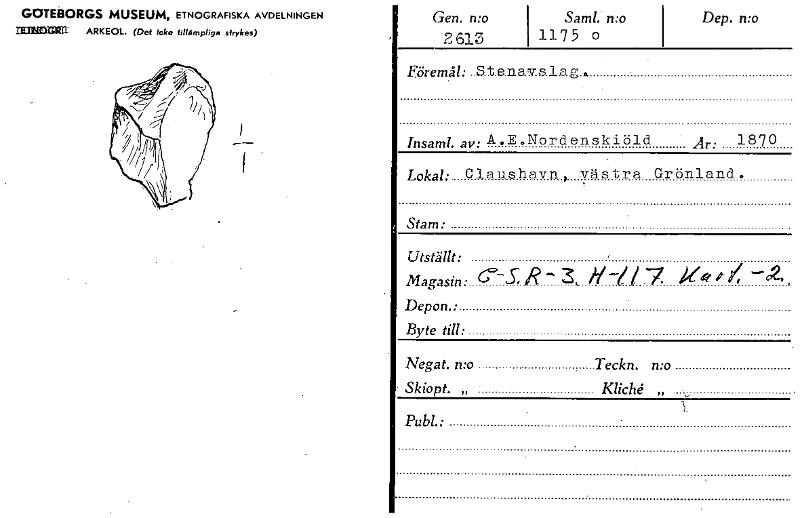 GÖTEBORGS MUSEUM, ETNOGRAFISKA AVDELNINGEN
ETNOGR. ARKEOL. (Det icke tillämpliga strykes)
Gen. n:o Saml. n:o Dep. n:o
2613 1175 o
Föremål: Stenavslag.
Insaml. av: A.E.Nordenskiöld År: 1870
Lokal: Claushavn, västra Grönland.
Stam:
Utställt:
Magasin: G-S.R-3. H-117. Kart.-2.
Depon.:
Byte till:
Negat. n:o Teckn. n:o
Skiopt. „ Kliché „
Publ.: